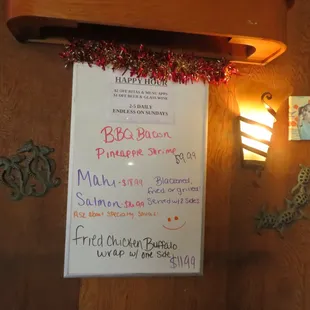 HAPPY HOUR
2-5 DAILY
ENDLESS ON SUNDAYS
BBQ Bacon
Pineapple Shrimp
$9.99
Mahi - $18.99
Salmon -
Blackened,
fried or grilled
Served w/ 2 Sides
Ask About Specialty
Fried Chicken Buffalo
wrap w/ one side
$11.99